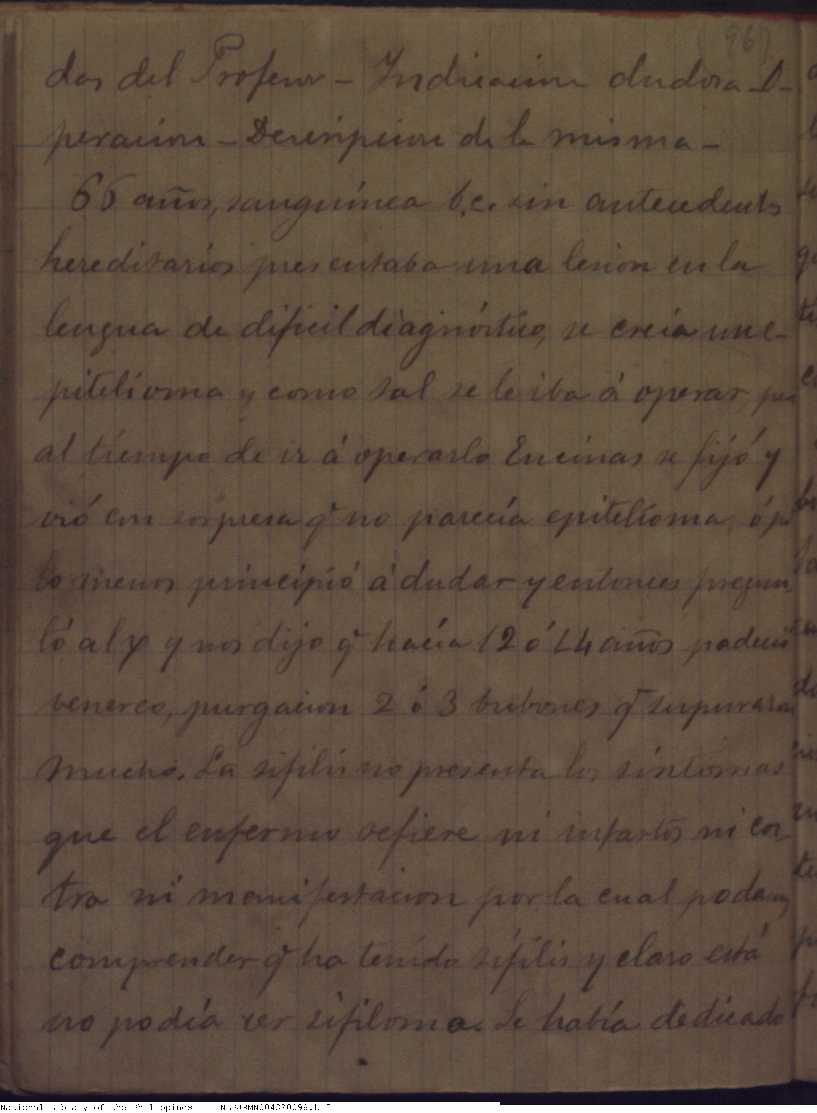 (96)
das del Profesor - Indicacion dudosa - O-
peracion - Descripcion de la misma -
66 años, sanguínea b.c. sin antecedents
hereditarios presentaba una lesion en la
lengua de dificil diagnóstico, se creía un e-
pitelioma y como tal se le iba á operar, pero
al tiempo de ir á operarlo Encinas se fijó y
vió con sorpresa q̃ no parecía epitelioma, ó p.
lo menos principió á dudar y entonces pregun
tó al y nos dijo q̃ hacía 12 ó 14 años padeció
venereo, purgacion 2 ó 3 bubones q̃ supuraron
mucho. La sifilis no presenta los síntomas
que el enfermo refiere ni infartos ni
tra ni manifestacion por la cual podam
comprender q̃ ha tenido sífilis y claro está
no podía ser sifiloma. Se había dedicado
National Library of the Philippines